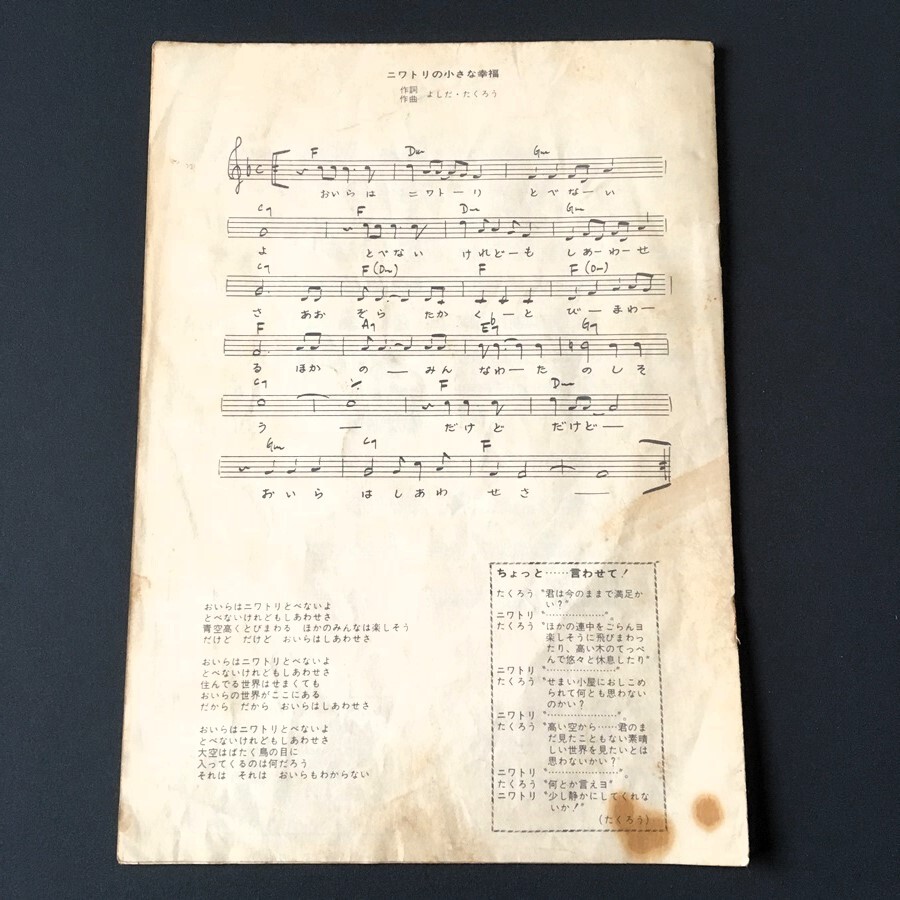 ニワトリの小さな幸福
作詞
作曲 よしだ・たくろう
F Dm Gm
おいらは ニワトーリ とべなーい
C7 F Dm Gm
よ とべない けれどーも しあーわーせ
C7 F(Dm) F F(Dm)
さ あお ぞら たか くーと びーまわー
F A7 E♭7 G7
る ほか の ー みん なわーた のしそ
C7 F Dm
う ー だけど だけどー
Gm C7 F
おいら はしあわ せさ ー
おいらはニワトリとべないよ
とべないけれどもしあわせさ
青空高くとびまわる ほかのみんなは楽しそう
だけど だけど おいらはしあわせさ
おいらはニワトリとべないよ
とべないけれどもしあわせさ
住んでる世界はせまくても
おいらの世界がここにある
だから だから おいらはしあわせさ
おいらはニワトリとべないよ
とべないけれどもしあわせさ
大空はばたく鳥の目に
入ってくるのは何だろう
それは それは おいらもわからない
ちょっと……言わせて!
たくろう "君は今のままで満足か
い?"
ニワトリ "………………"。
たくろう "ほかの連中をごらんヨ
楽しそうに飛びまわっ
たり、高い木のてっぺ
んで悠々と休息したり"
ニワトリ "…………………"
たくろう "せまい小屋におしこめ
られて何とも思わない
のかい?
ニワトリ "…………………"。
たくろう "高い空から……君のま
だ見たこともない素晴
しい世界を見たいとは
思わないかい?"
ニワトリ "…………………"。
たくろう "何とか言えヨ"
ニワトリ "少し静かにしてくれな
いか!"
(たくろう)